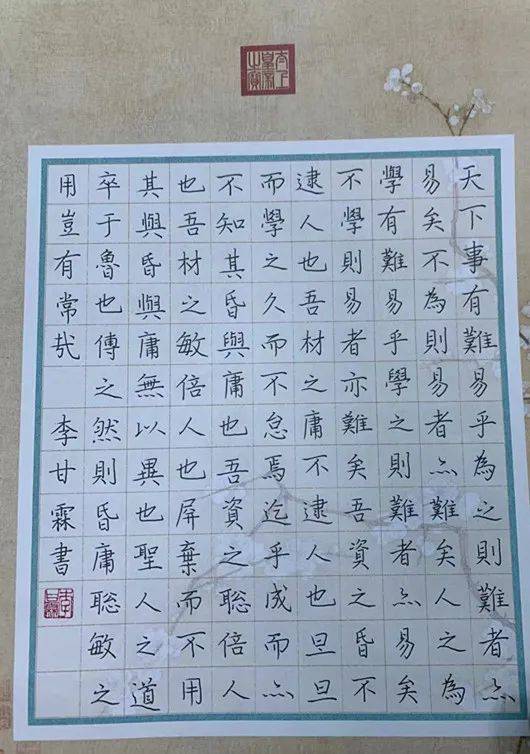 太上
皇帝
之寶
天下事有難易乎為之則難者亦
易矣不為則易者亦難矣人之為
學有難易乎學之則難者亦易矣
不學則易者亦難矣吾資之昏不
逮人也吾材之庸不逮人也旦旦
而學之久而不怠焉迄乎成而亦
不知其昏與庸也吾資之聰倍人
也吾材之敏倍人也屏棄而不用
其與昏與庸無以異也聖人之道
卒于魯也傳之然則昏庸聰敏之
用豈有常哉 李甘霖書